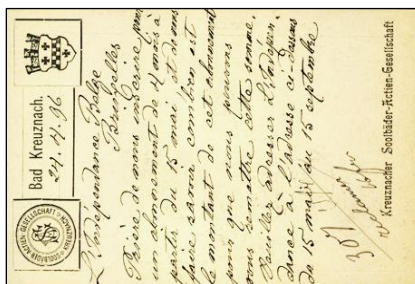 SOOLBÄDER ACTIEN GESELLSCHAFT KREUZNACH
Bad Kreuznach,
24. 4. 96
L'Indépendance Belge
Bruxelles
Prière de nous inscrire pour
un abonnement de 4 mois à
partir du 15 mai et de nous
faire savoir combien est
le montant de cet abonnement
pour que nous puissions
vous remettre cette somme.
Veuillez adresser L'Indépen-
dance à l'adresse ci-dessous
du 15 mai au 15 septembre
Kreuznacher Soolbäder-Actien-Gesellschaft